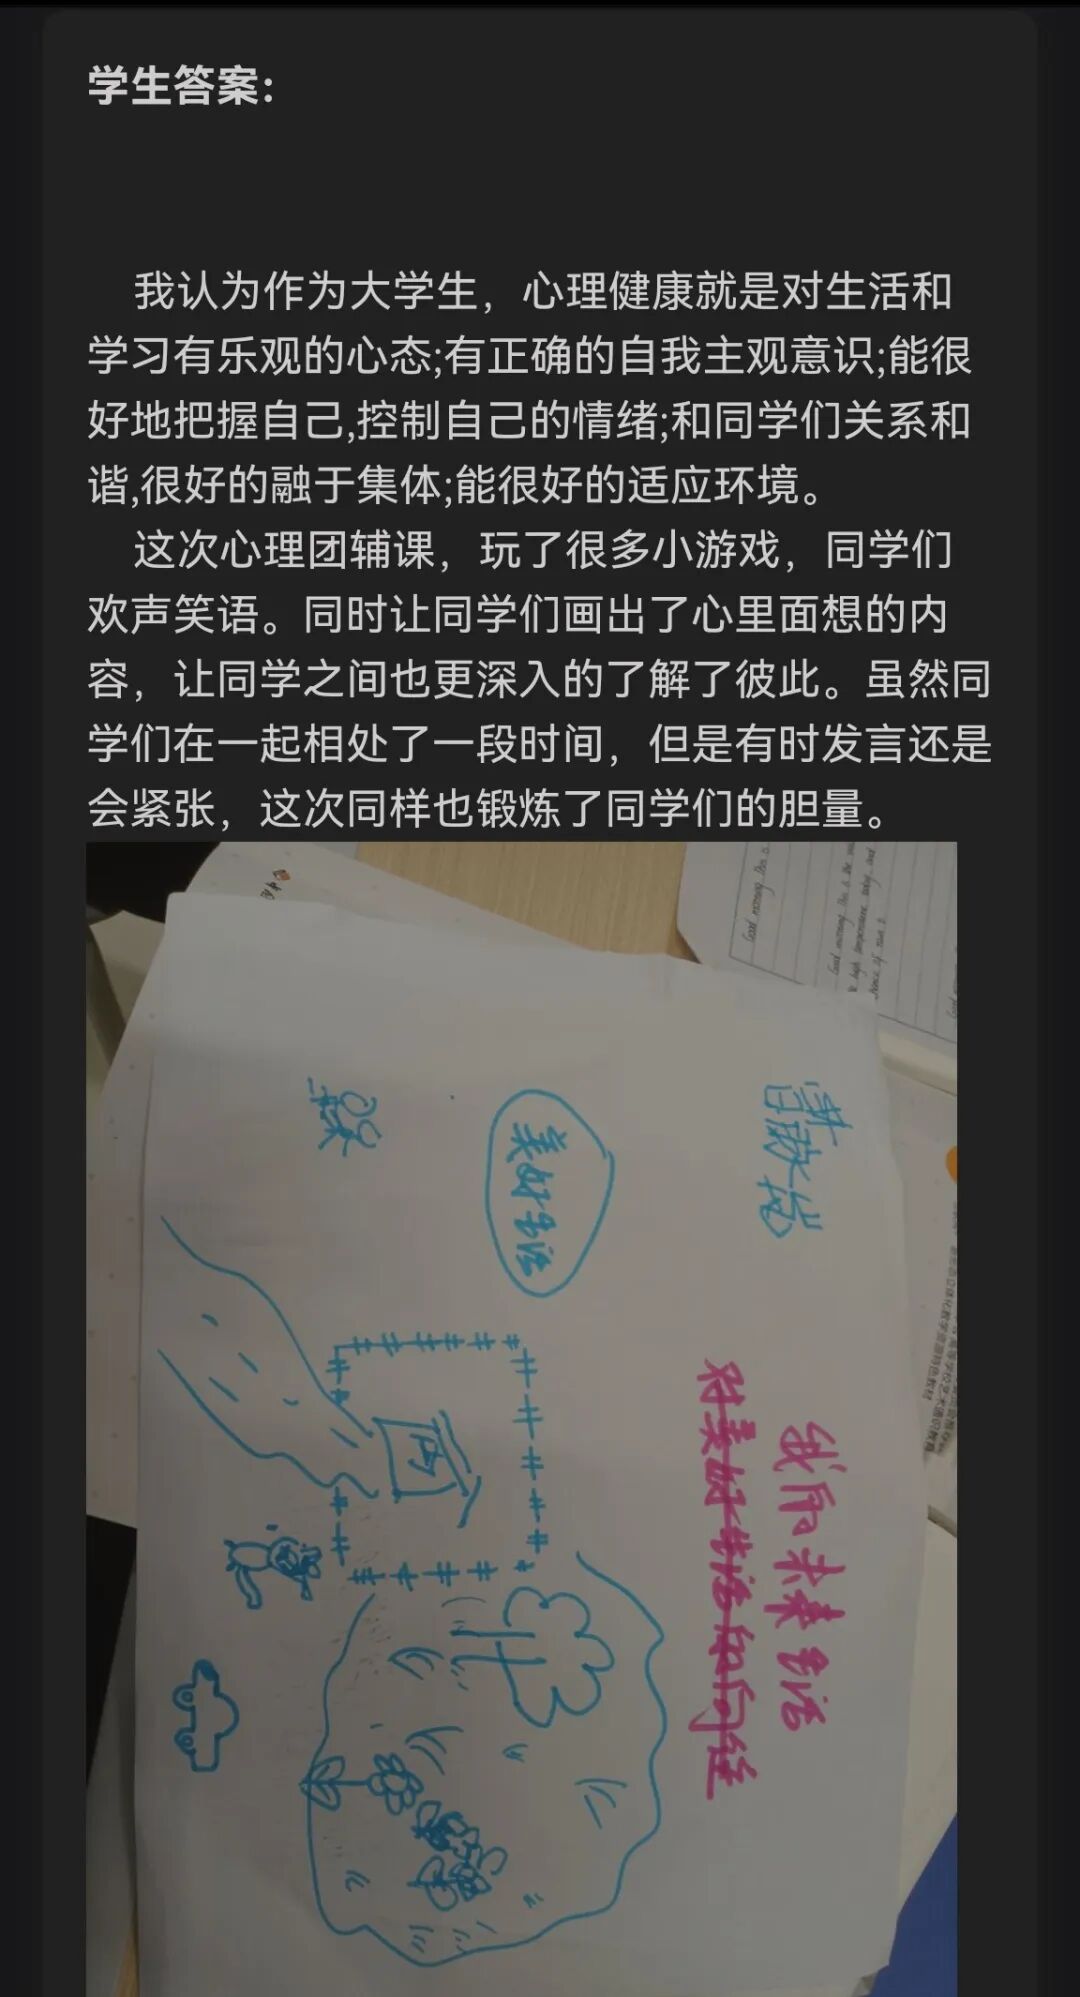 学生答案:
我认为作为大学生，心理健康就是对生活和
学习有乐观的心态;有正确的自我主观意识;能很
好地把握自己,控制自己的情绪;和同学们关系和
谐,很好的融于集体;能很好的适应环境。
这次心理团辅课，玩了很多小游戏，同学们
欢声笑语。同时让同学们画出了心里面想的内
容，让同学之间也更深入的了解了彼此。虽然同
学们在一起相处了一段时间，但是有时发言还是
会紧张，这次同样也锻炼了同学们的胆量。
Good morning This is
Good morning This is the
high temperature today and
美好生活
我的未来生活
对美好生活的向往